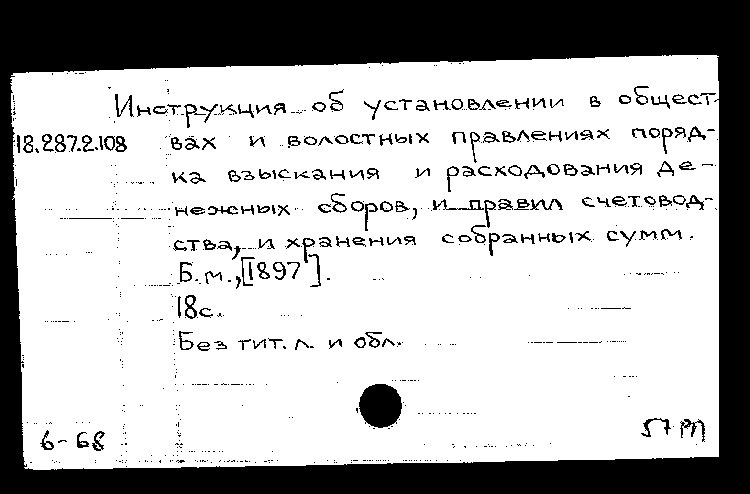 Инструкция об установлении в общест-
18.287.2.108 вах и волостных правлениях поряд-
ка взыскания и расходования де-
нежных сборов, и правил счетовод-
ства, и хранения собранных сумм.
Б.м., [1897].
18с.
Без тит. л. и обл.
6-68
57 РП